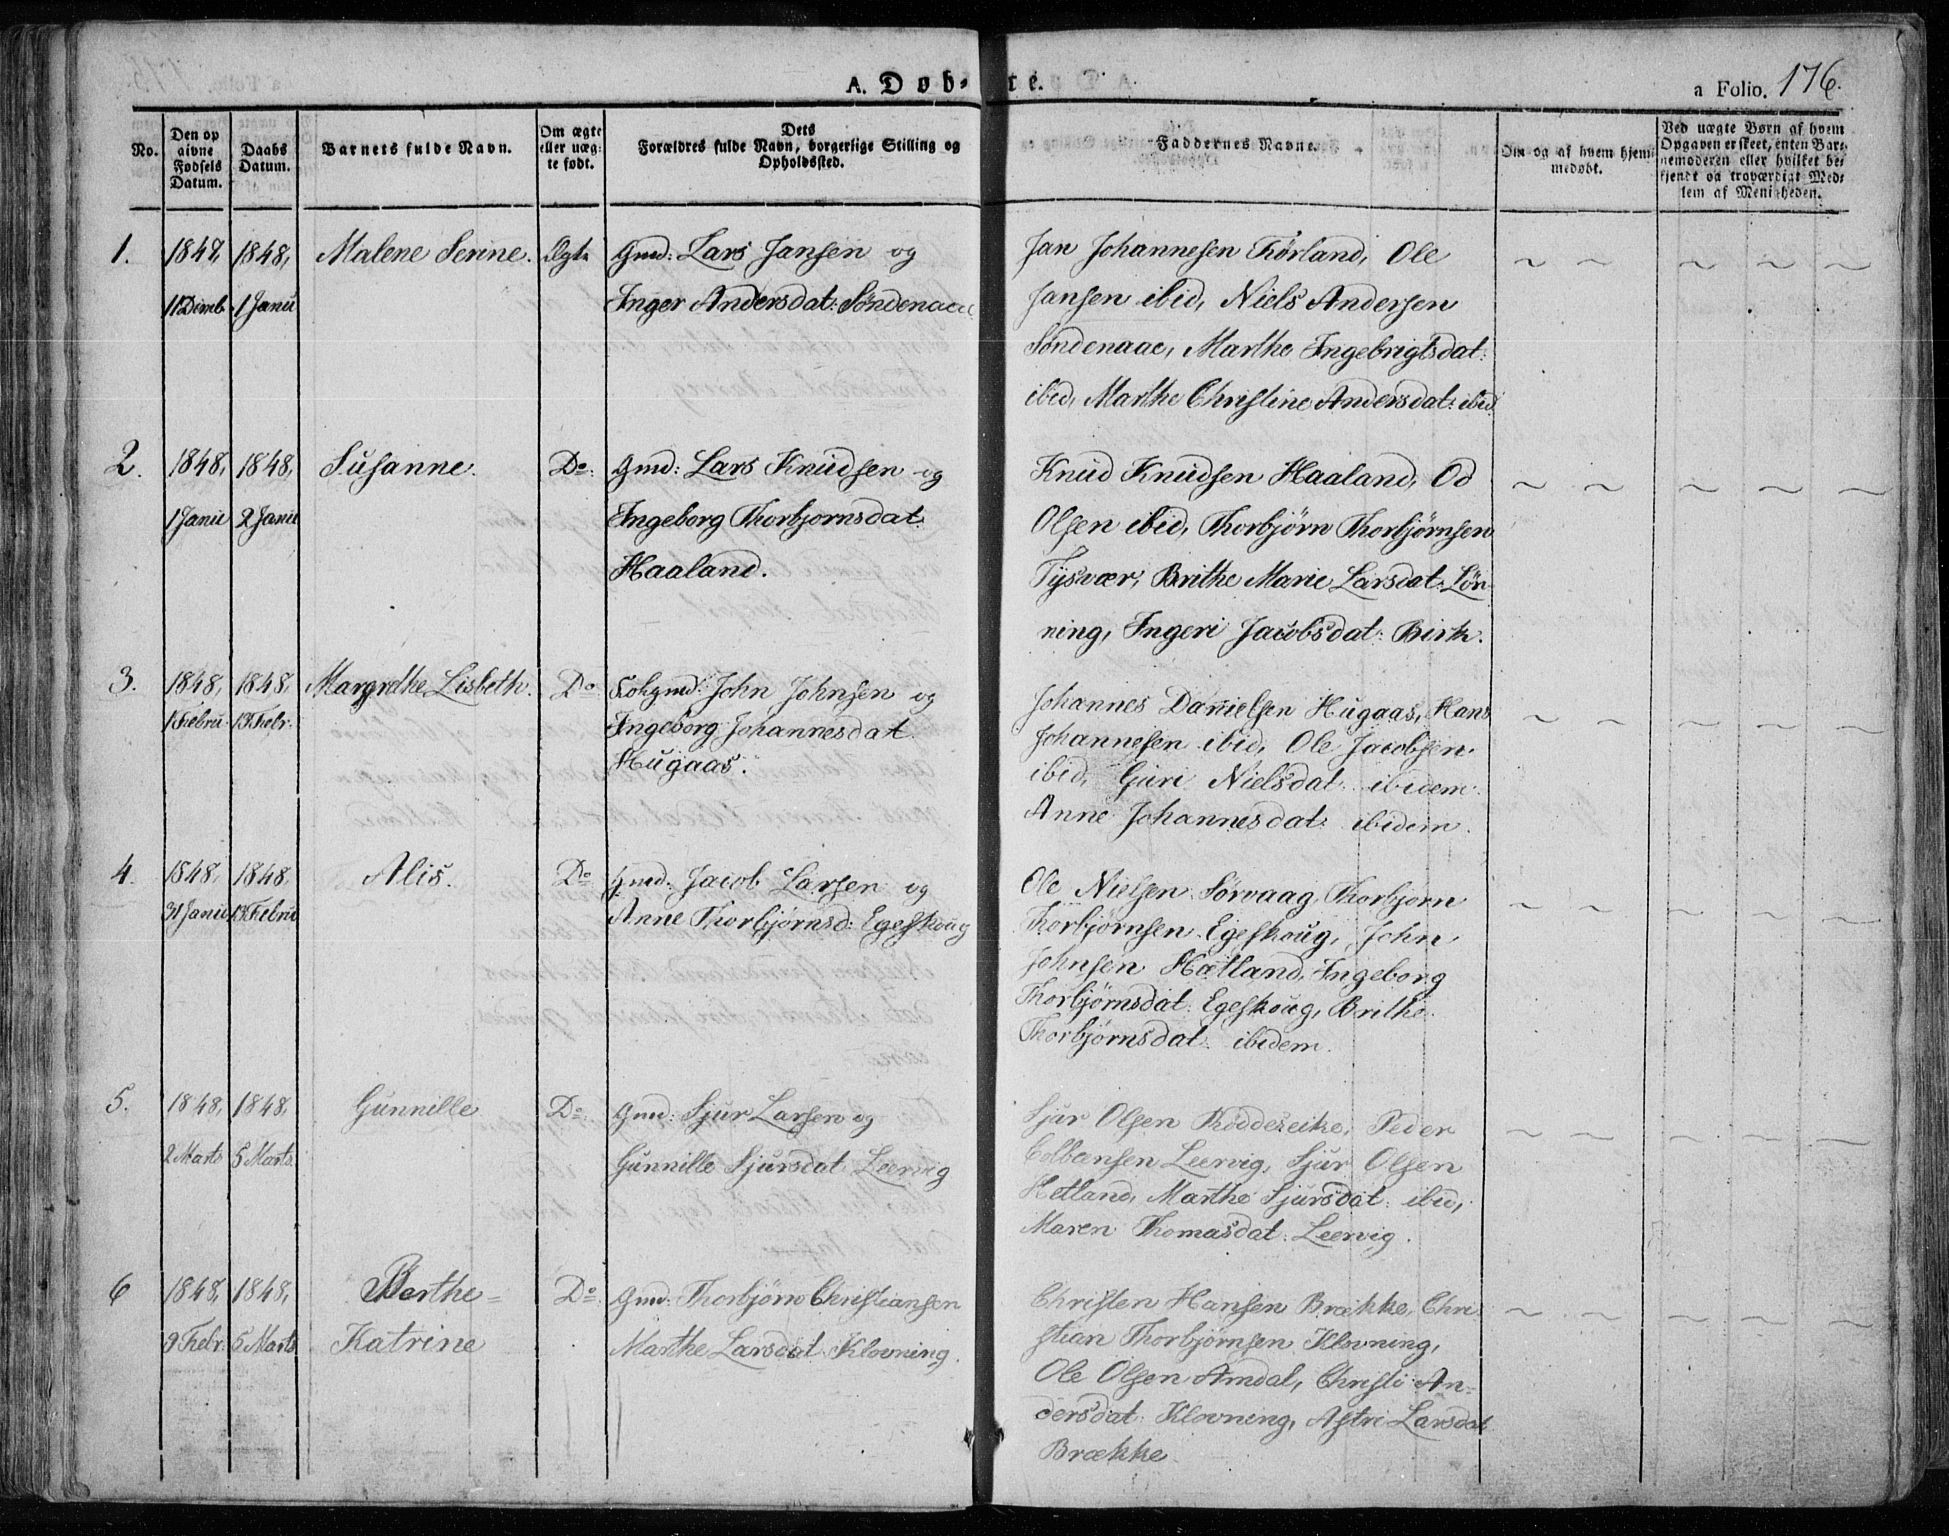 A. Døb-te.
a Folio. 176.
No.
Den op
givne
Fødsels
Datum.
Daabs
Datum.
Barnets fulde Navn.
Om ægte
eller uæg-
te født.
Dets
Forældres fulde Navn, borgerlige Stilling og
Opholdssted.
Faddernes Navne.
Om og af hvem hjem-
medøbt.
Ved uægte Børn af hvem
Opgaven er skeet, enten Bar-
nemoderen eller hvilket be-
kjendt og troværdigt Med-
lem af Menigheden.
1.
1848,
1848,
Malene Serine.
Ægte
Gmd: Lars Jansen og
Jan Johannesen Førland, Ole
11 Dcmb.
1 Janu
Inger Andersdat: Søndenaae
Jansen ibid, Niels Andersen
Søndenaae, Marthe Ingebrigtsdat:
ibid, Marthe Christine Andersdat: ibid
2.
1848,
1848,
Susanne.
Do.
Gmd: Lars Knudsen og
Knud Knudsen Haaland, Od
1 Janu
2 Janu
Ingeborg Thorbjornsdat:
Olsen ibid, Thorbjörn Thorbjörnsen
Haaland.
Tysvær, Brithe Marie Larsdat: Løn-
ning, Ingeri Jacobsdat: Birk.
3.
1848,
1848,
Margrethe Lisbeth.
Do
John Johnsen og
Johannes Danielsen Hugaas, Hans
1 Febru
13 Febr.
Ingeborg Johannesdat
Johannesen ibid, Ole Jacobsen
Hugaas.
ibid, Guri Nielsdat. ibidem.
Anne Johannesdat: ibidem.
4.
1848,
1848,
Alis.
Do
Gmd. Jacob Larsen og
Ole Nielsen Sörvaag, Thorbjørn
31 Janu
13 Febru
Anne Thorbjörnsd: Egeskoug
Thorbjörnsen Egeskoug, John
Johnsen Hætland, Ingeborg
Thorbjörnsdat: Egeskoug, Brithe
Thorbjörnsdat: ibidem.
5.
1848,
1848,
Gunnille
Do.
Gmd: Sjur Larsen og
Sjur Olsen Röddeseike, Peder
2 Marts
5 Marts
Gunnille Sjursdat: Leervig
Colbensen Leervig, Sjur Olsen
Hetland, Marthe Sjursdat: ibid,
Maren Thomasdat: Leervig.
6
1848,
1848,
Berthe=
Do.
Gmd: Thorbjørn Christiansen
Christen Hansen Brække, Chri
9 Febr.
5 Marts
Katrine
Marthe Larsdat Klovning.
stian Thorbjörnsen Klovning,
Ole Olsen Amdal, Christi An-
dersdat: Klovning, Astri Larsdat
Brække